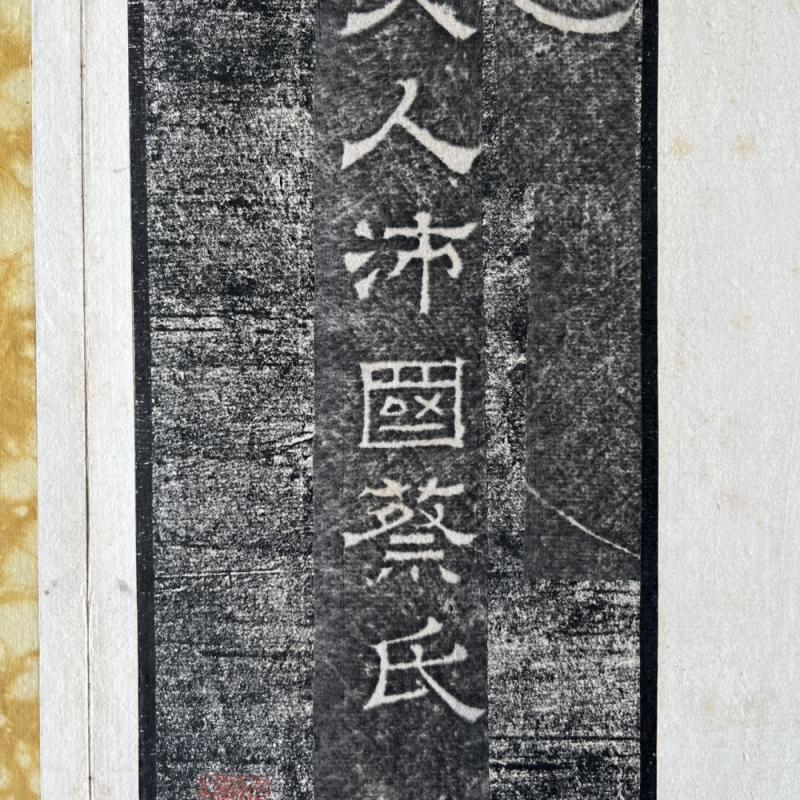 人沛國蔡氏